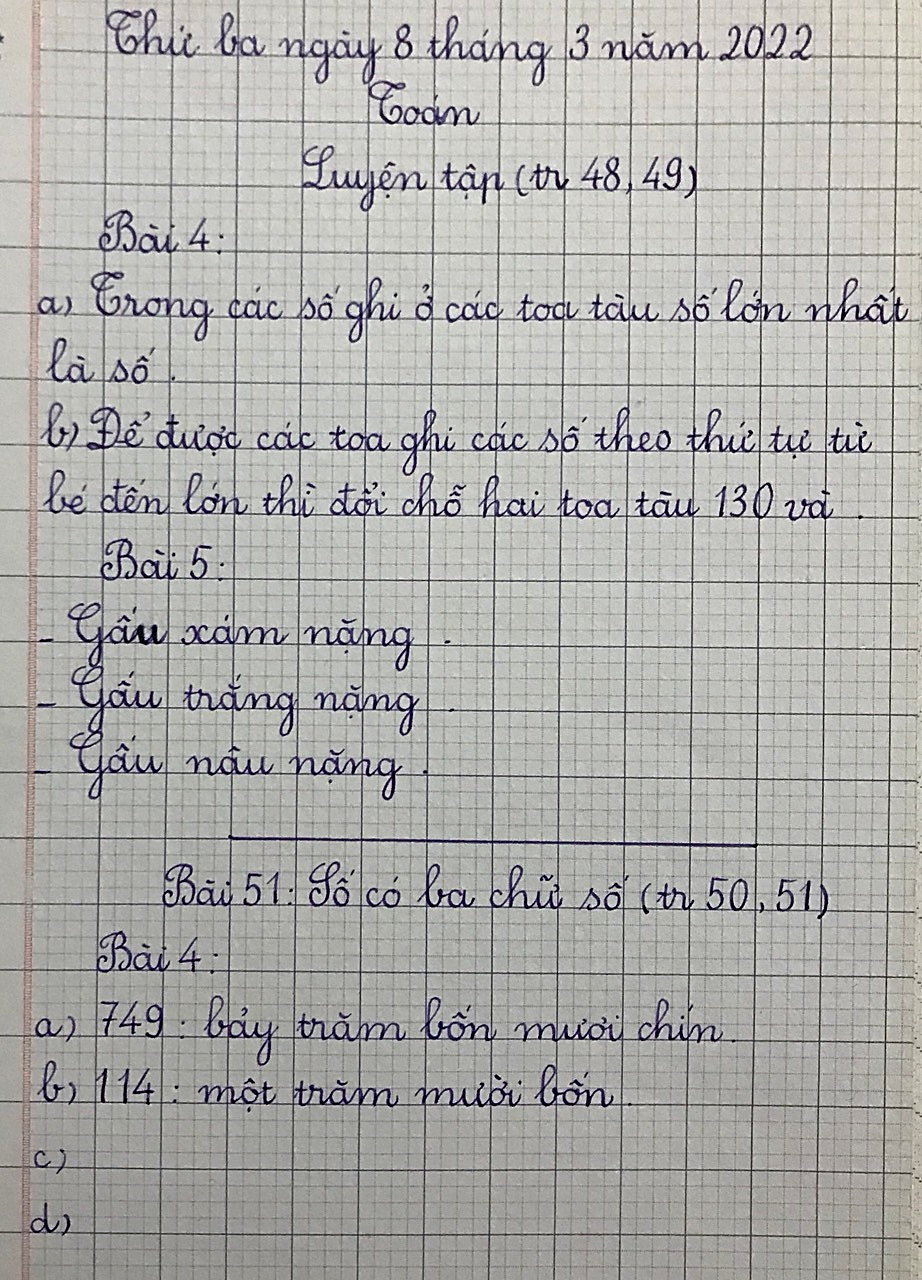 Thứ ba ngày 8 tháng 3 năm 2022
Toán
Luyện tập (tr 48, 49)
Bài 4:
a) Trong các số ghi ở các toa tàu số lớn nhất
là số .
b) Để được các toa ghi các số theo thứ tự từ
bé đến lớn thì đổi chỗ hai toa tàu 130 và .
Bài 5:
- Gấu xám nặng .
- Gấu trắng nặng .
- Gấu nâu nặng .
Bài 51: Số có ba chữ số (tr 50, 51)
Bài 4:
a) 749 : bảy trăm bốn mươi chín.
b) 114 : một trăm mười bốn.
c)
d)